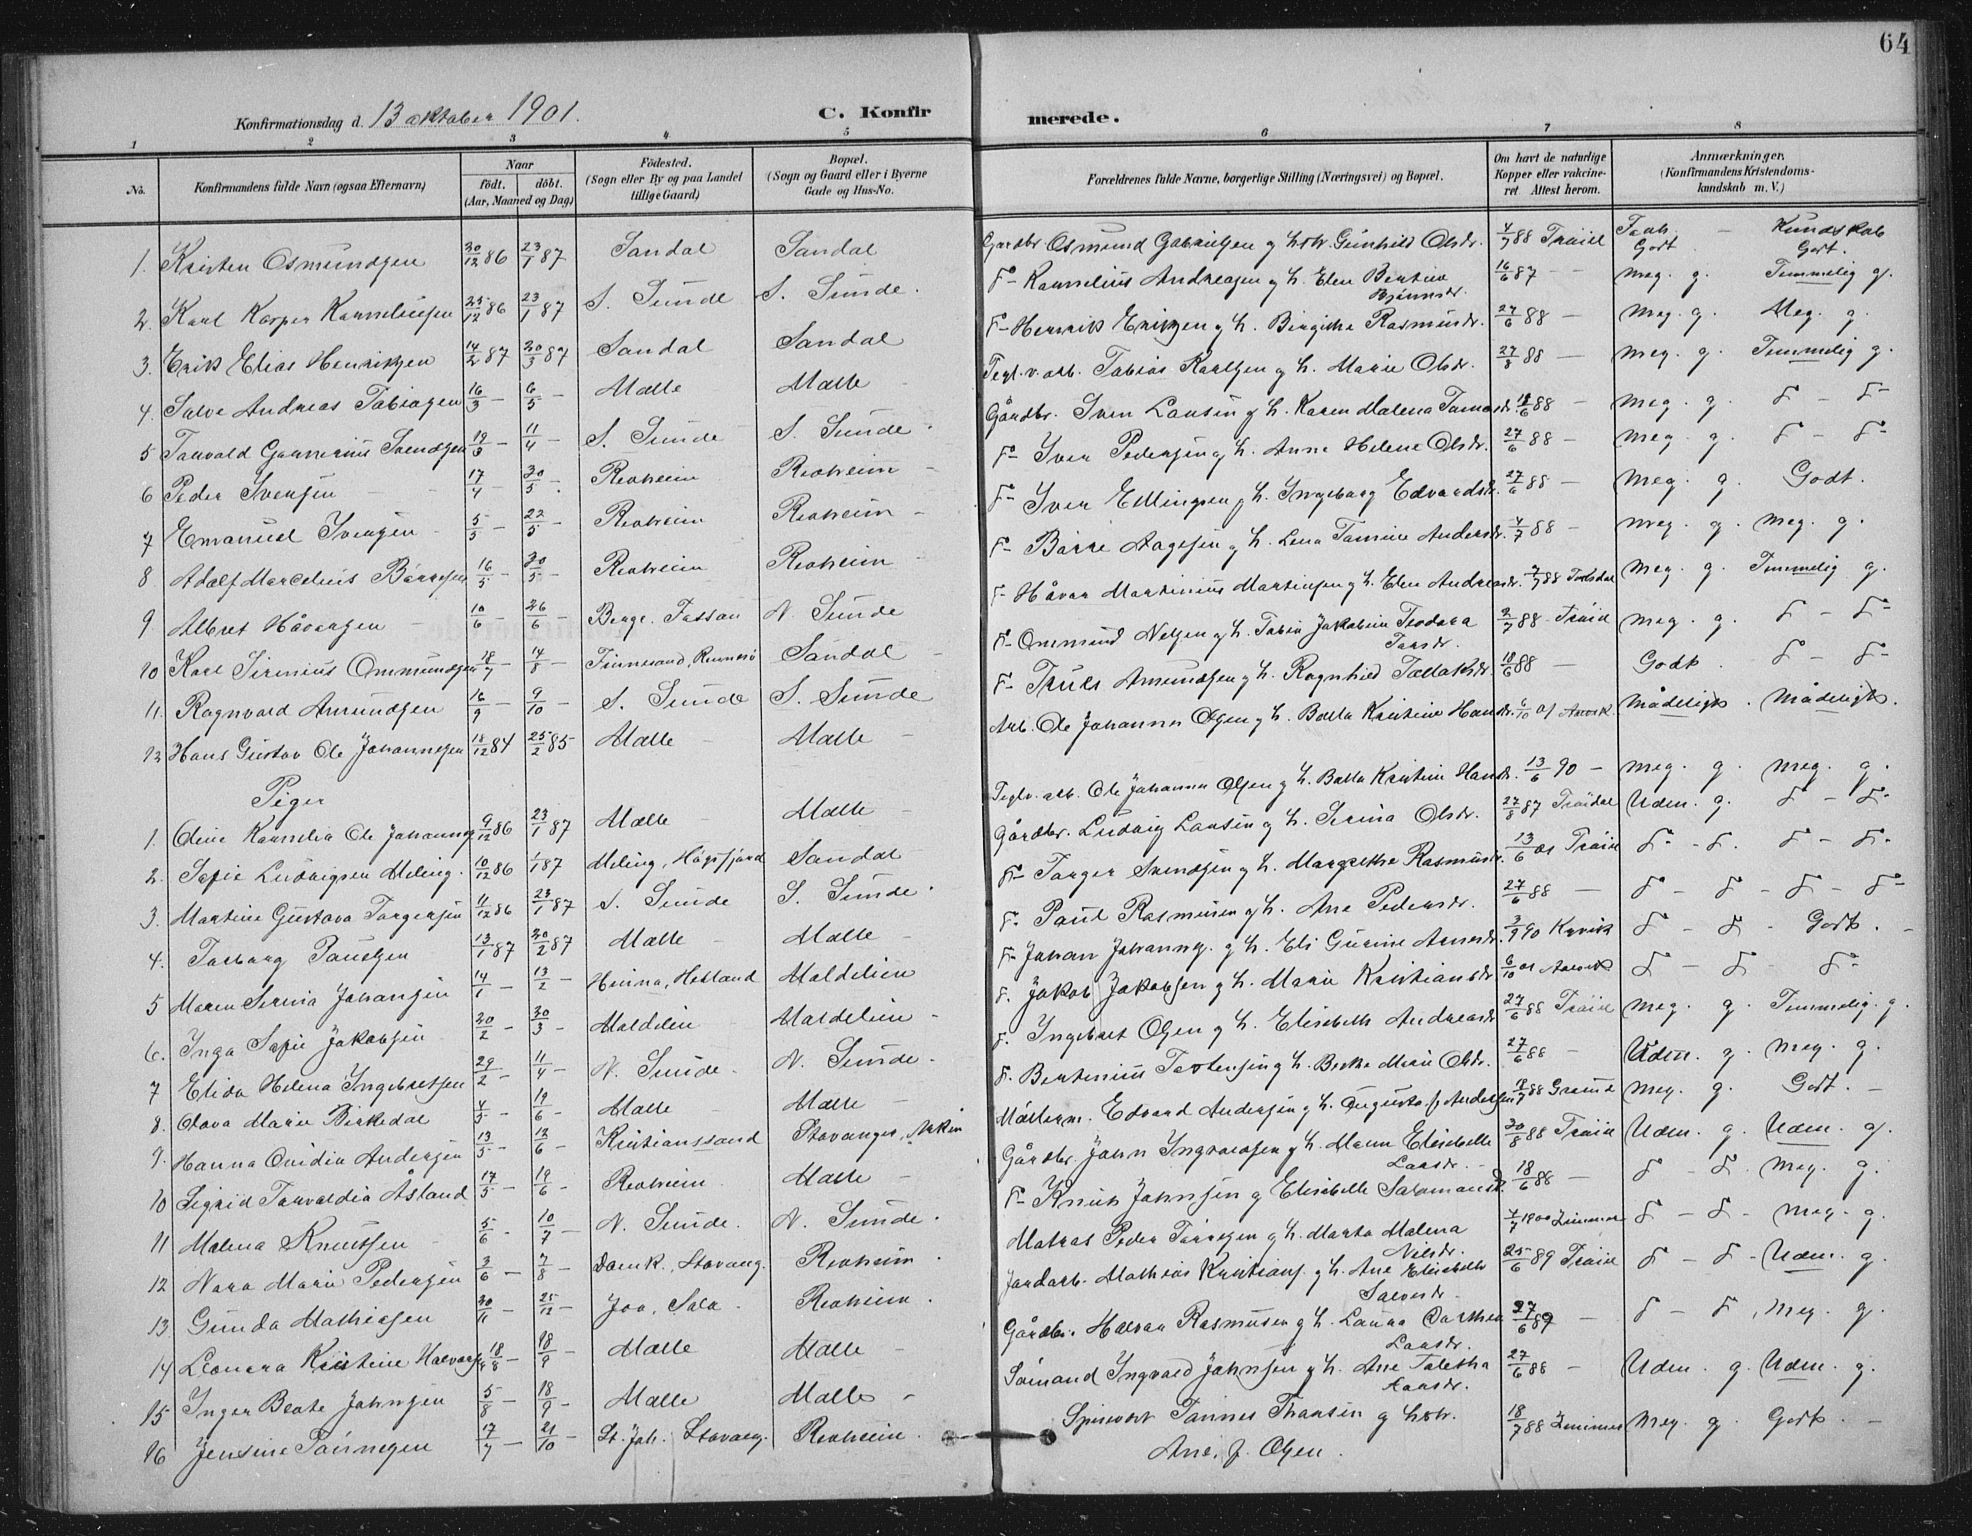 64
Konfirmationsdag d. 13 oktober 1901. C. Konfirmerede.
1 2 3 4 5 6 7 8
No. Konfirmandens fulde Navn (ogsaa Efternavn) Naar født. døbt. (Aar, Maaned og Dag) Fødested. (Sogn eller By og paa Landet tillige Gaard) Bopæl. (Sogn og Gaard eller i Byerne Gade og Hus-No. Forældrenes fulde Navne, borgerlige Stilling (Næringsvei) og Bopæl. Om havt de naturlige Kopper eller vakcineret. Attest herom. Anmærkninger. (Konfirmandens Kristendomskundskab m. V.)
1. Kristen Osmundsen 30/12 86 23/1 87 Sandal Sandal Gardbr. Osmund Gabrielsen g h str Gunhild Olsdr. 4/7 88 Kundskab Godt. Godt.
2. Karl Kasper Kornelius­sen 25/12 86 23/1 87 S. Sunde S. Sunde. F- Kornelius Andreasen g h. Elen Bertine Bjørnsdr. 16/6 87 - meg. g. Temmelig g.
3. Erik Elias Henriksen 14/2 87 20/3 87 Sandal Sandal F- Henrik Eriksen g h. Birgithe Rasmusdr. 27/6 88 - meg. g. Meg. g.
4. Salve Andreas Tobiasen 16/3 - 6/5 - Malle Malle Tegl.v. arb. Tobias Karlsen g h. Marie Olsdr. 27/8 88 - meg. g. Temmelig g.
5 Torvald Gunnerius Svendsen 19/3 - 11/4 - S. Sunde S. Sunde. Gårdbr. Sven Larsen g h. Karen Malena 18/6 88 - meg. g. F - F-
6 Peder Iversen 17/4 - 30/5 - Revheim Revheim F- Iver Pedersen g h. Anne Helene Olsdr. 27/6 88 - meg. g. F - F-
7 Emanuel Iversen 5/5 - 22/5 - Revheim Revheim F- Iver Ellingsen g h. Ingeborg Edvardsdr. 27/6 88 - meg. g. Godt.
8. Adolf Marcelius Børresen 16/5 - 30/5 - Revheim Revheim F- Børre Aagesen g h. Lena Tomine Andersdr. 4/7 88 - meg. g. meg. g.
9 Albret Håversen 10/6 - 26/6 - Berge. Fossan N. Sunde F- Håvar Martinius Mortensen g h. Elen Andreasdr. 4/7 88 meg. g. Temmelig g.
10 Karl Sirenius Ommundsen 18/7 - 14/8 - Finnesand, Rennesø Sandal F- Ommund Nelsen g h. Tobia Jakobine Teodora 2/7 88 meg. g. F - F-
11. Ragnvald Amundsen 16/9 - 9/10 - S. Sunde S. Sunde F- Truls Amundsen g h. Ragnhild Tollaksdr. 18/6 88 - Godt. F - F-
12 Hans Gustav Ole Johannesen 18/12 84 25/2 85 Malle Malle Arb. Ole Johannes Olsen g h. Bolla Kristine Hansdr. 6/10 01 Mådeligt. Mådeligt.
Piger
1. Oline Kornelia Ole Johannes 9/12 86 23/1 87 Malle Malle Teglv. arb. Ole Johannes Olsen g h. Bolla Kristine Hansdr. 13/6 90 - meg. g. meg. g.
2. Sofie Ludvigsen Meling. 10/12 86 1/1 87 Meling, Høgsfjord Sandal Gårdbr. Ludvig Larsen g h. Serina Olsdr. 27/8 87 Uden. g. F - F-
3. Martine Gustava Torgersen 11/12 86 23/1 87 S. Sunde S. Sunde. F- Torger Svendsen g h. Margrethe Rasmusdr. 13/6 01 F - F. F - F-
4. Torborg Paulsen 13/1 87 20/2 87 Malle Malle F. Paul Rasmusen g h. Ane Pedersdr. 27/6 88 - F - F - F - F-
5 Maren Serina Johansen 14/1 - 13/2 - Hinna, Hetland Maldelien F- Johan Johannes. g h. Eli Gurine 3/9 90 F - F - Godt.
6. Inga Sofie Jakobsen 20/2 - 20/3 - Maldelien Maldelien F. Jakob Jakobsen g h. Marie Kristiansdr. 6/10 01 F - F - F-
7 Elida Helena Ingebretsen 29/2 - 11/4 - N. Sunde N. Sunde. F. Ingebret Olsen g h. Elisabeth Andreasdr 27/6 88 meg. g. Temmelig. g.
8. Olava Marie Birkedal 4/5 - 19/6 - Malle Malle F. Bertinius Torkelsen g h. Berthe Marie Olsdr. 27/6 88 - Uden. g. meg. g.
9. Hanna Ovidia Andersen 13/5 - 12/6 - Kristianssand Stavanger, Møllerm. Edvard Andersen g h. Augusta f. Andersen meg. g. Godt. -
10 Sigrid Torvaldia Åsland 17/5 - 19/6 - Revheim Malle Gårdbr. John Ingvaldsen g h. Maren Elisabeth Larsdr. 30/8 88 Uden. g. Uden. g.
11 Malena Knutsen 5/6 - 10/7 - N. Sunde. N. Sunde. F- Knut Johnsen g Elisabeth Salomonsdr. 18/6 88 - F - F. meg. g.
12 Nora Marie Pedersen 3/6 - 7/8 - Domk. Stavang. Revheim Matros Peder g h. Marta Malena Nilsdr. 4/7 1900 F - F - meg. g.
13. Gunda Mathiasen 30/11 - 25/12 - Joa, Sola Revheim. Jordarb. Mathias Kristians. g h. Ane Elisabeth Salvesdr. 25/6 89 F - F - Uden. g.
14 Leonora Kristine Halvorsen 18/8 - 18/9 - Malle Malle Gårdbr. Halvor Rasmusen g h. Laura Dorthea Larsdr. 27/6 89 - F - F. meg. g.
15 Inger Beate Johnsen 5/8 - 18/9 - Malle Malle - Sømand Ingvald Johnsen g h. Ane Taletha 27/6 88 - Uden. g. Uden. g.
16 Jensine Tønnesen 17/7 - 21/10 - St. Joh. Stavang. Revheim. Tønnes g hstr. Ane. f. Olsen. 18/7 88 meg. g. Godt. -